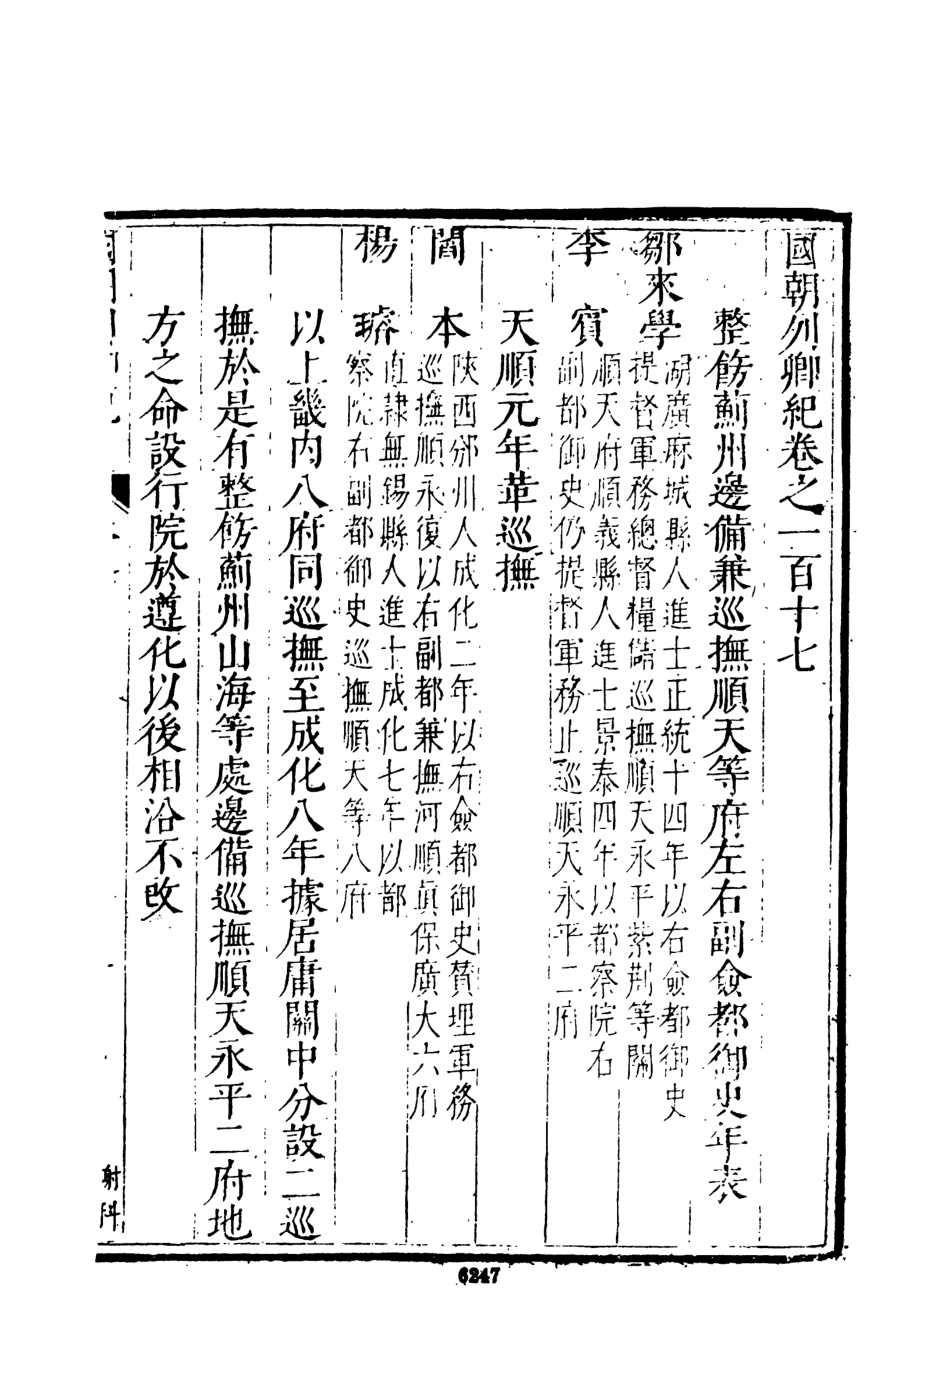 國朝列卿紀卷之一百十七
整飭薊州邊備兼巡撫順天等府左右副僉都御史年表
鄒來學
湖廣麻城縣人進士正統十四年以右僉都御史
提督軍務總督糧儲巡撫順天永平紫荆等關
李賓
順天府順義縣人進士景泰四年以都察院右
副都御史仍提督軍務止巡順天永平二府
天順元年革巡撫
閻本
陝西邠州人成化二年以右僉都御史贊理軍務
巡撫順永復以右副都兼撫河順眞保廣大六府
楊璿
直隸無錫縣人進士成化七年以都
察院右副都御史巡撫順天等八府
以上畿內八府同巡撫至成化八年據居庸關中分設二巡
撫於是有整飭薊州山海等處邊備巡撫順天永平二府地
方之命設行院於遵化以後相沿不改
6247